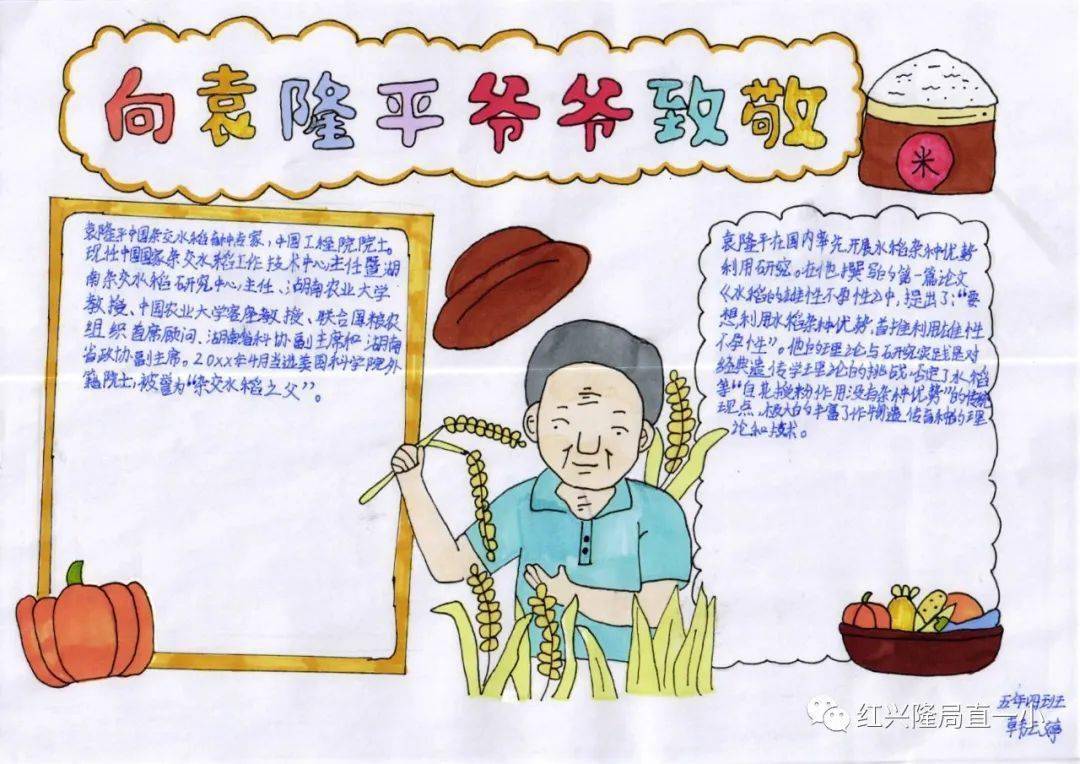 向袁隆平爷爷致敬
米
袁隆平中国杂交水稻育种专家,中国工程院院士。
现任中国国家杂交水稻工作技术中心主任暨湖
南杂交水稻研究中心主任、湖南农业大学
教授、中国农业大学客座教授、联合国粮农
组织首席顾问、湖南省科协副主席和湖南
省政协副主席。20xx年4月当选美国科学院外
籍院士,被誉为“杂交水稻之父”。
袁隆平在国内率先开展水稻杂种优势
利用研究。在他撰写的第一篇论文
《水稻的雄性不孕性》中,提出了:“要
想利用水稻杂种优势,首推利用雄性
不孕性”。他的理论与研究实践是对
经典遗传学理论的挑战,否定了水稻
等“自花授粉作用没有杂种优势”的传统
观点,极大的丰富了作物遗传育种的理
论和技术。
五年四班
韩云婷
红兴隆局直一小